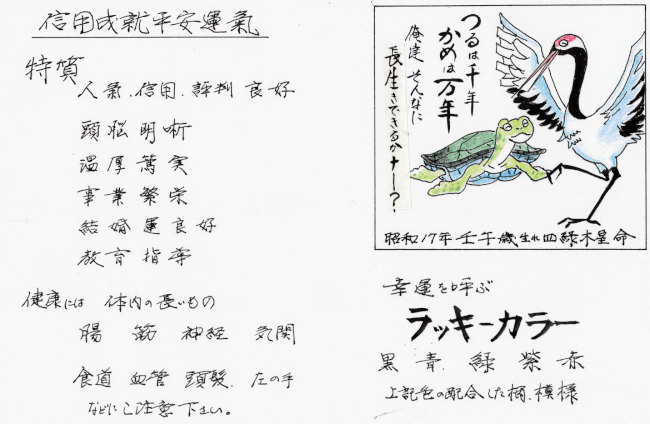 信用成就平安運氣
特質
人氣.信用.評判 良好
頭脳明晰
温厚篤実
事業繁栄
結婚運良好
教育指導
健康には 体内の長いもの
腸 筋 神経 気関
食道 血管 頭髪. 左の手
などにご注意下さい。
つるは千年
かめは万年
俺達 そんなに
長生きできるかナー?
昭和17年 壬午歳生れ 四緑木星命
幸運を呼ぶ
ラッキーカラー
黒 青. 緑 紫 赤
上記色の配合した柄.模様